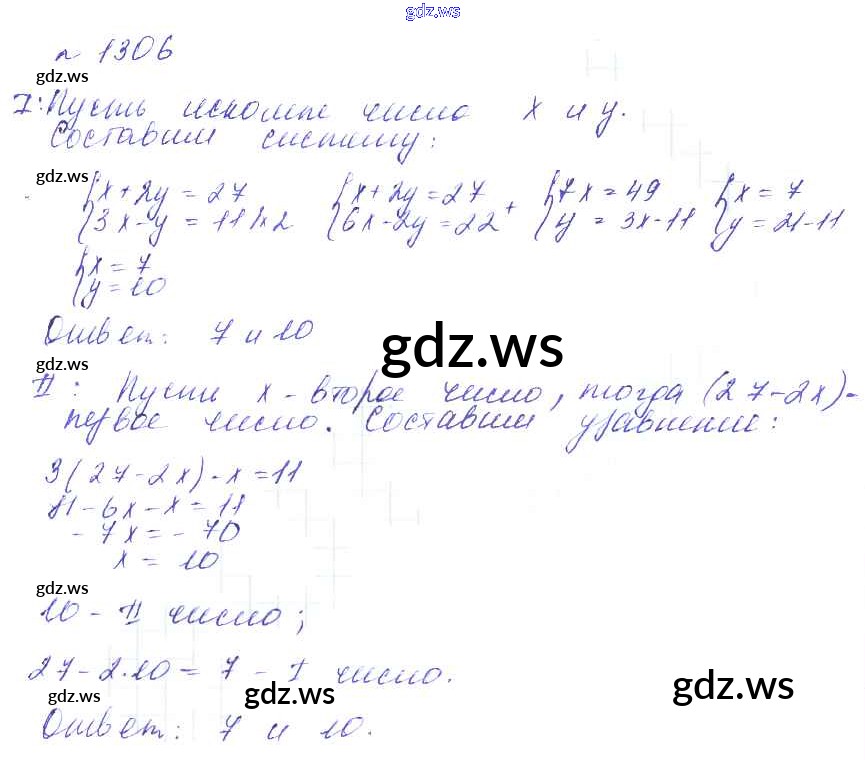 gdz.ws
n 1306
gdz.ws
I: Пусть искомые число x и y.
Составим систему:
gdz.ws
{x + 2y = 27 {x + 2y = 27 + {7x = 49 {x = 7
{3x - y = 11 |x2 {6x - 2y = 22 {y = 3x - 11 {y = 21 - 11
{x = 7
{y = 10
Ответ: 7 и 10
gdz.ws
gdz.ws
II: Пусть x - второе число, тогда (27 - 2x) -
первое число. Составим уравнение:
3(27 - 2x) - x = 11
81 - 6x - x = 11
- 7x = - 70
x = 10
gdz.ws
10 - II число;
27 - 2·10 = 7 - I число.
gdz.ws gdz.ws gdz.ws
Ответ: 7 и 10.